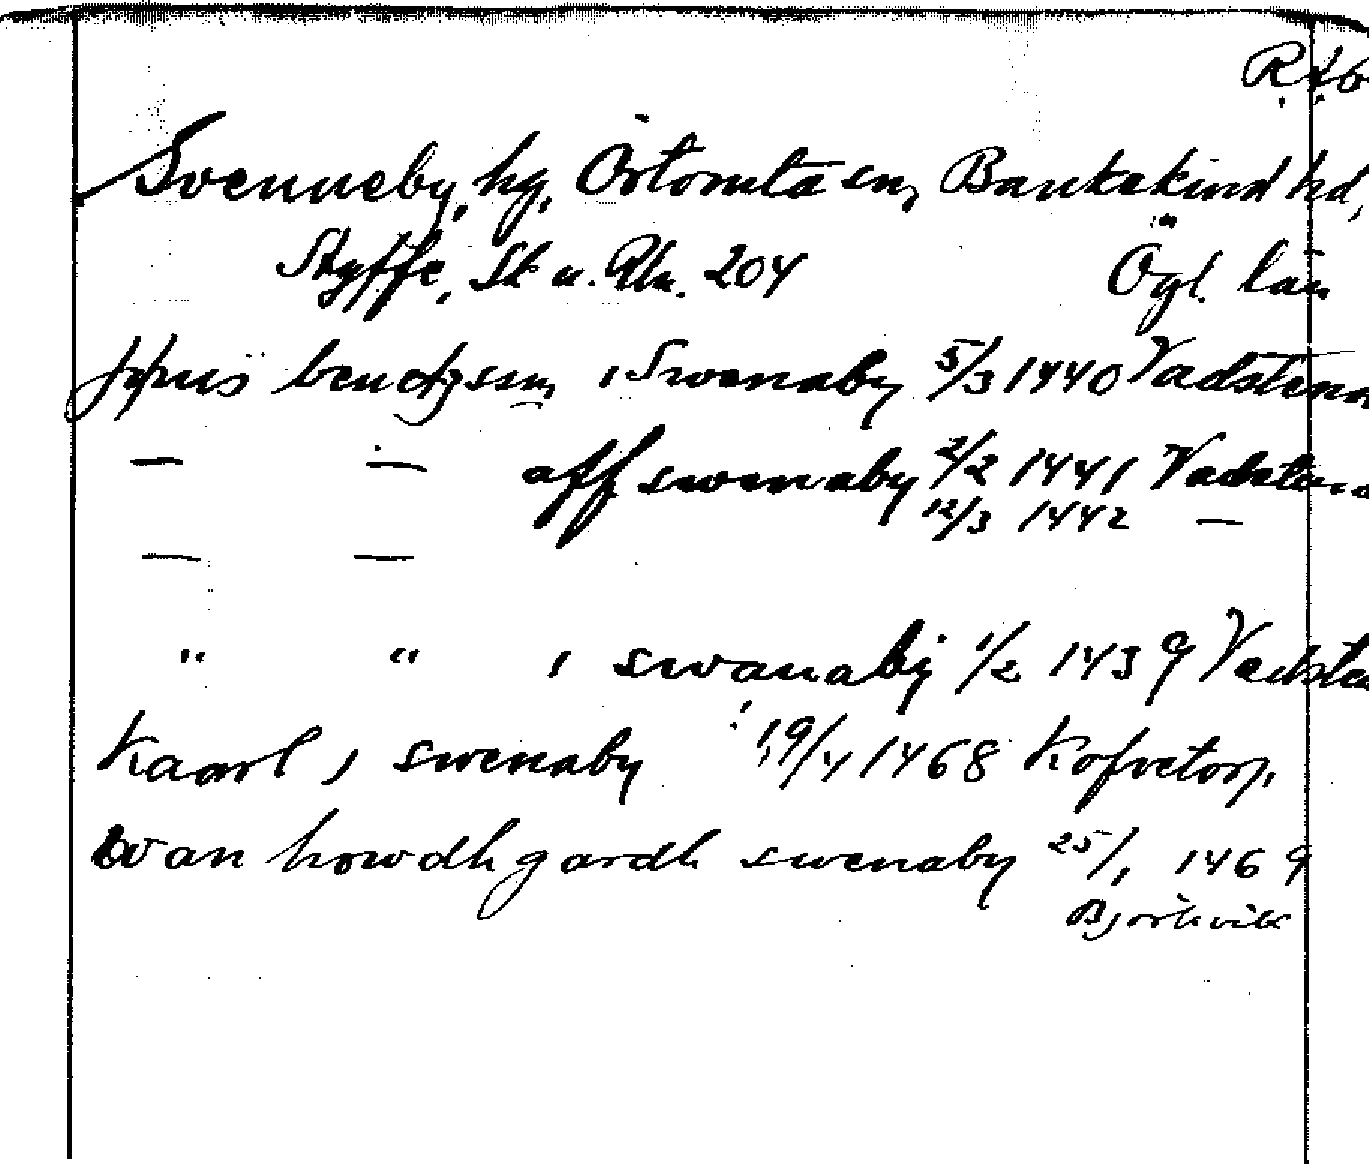 Svenneby, hg, Örtomta sn, Bankekind hd,
Styffe, Sk u. Un. 204 Ögl. län
bendtzsson i Swenaby 5/3 1440 Vadstena
— — aff swenaby 2/2 1441 Vadstena
12/3 1442 —
— —
" " i swanaby 1/2 1439 Vadste
Kaarl i swenaby 19/4 1468 Kofvetorp,
howdhgardh swenaby 25/1 1469
Björkvik